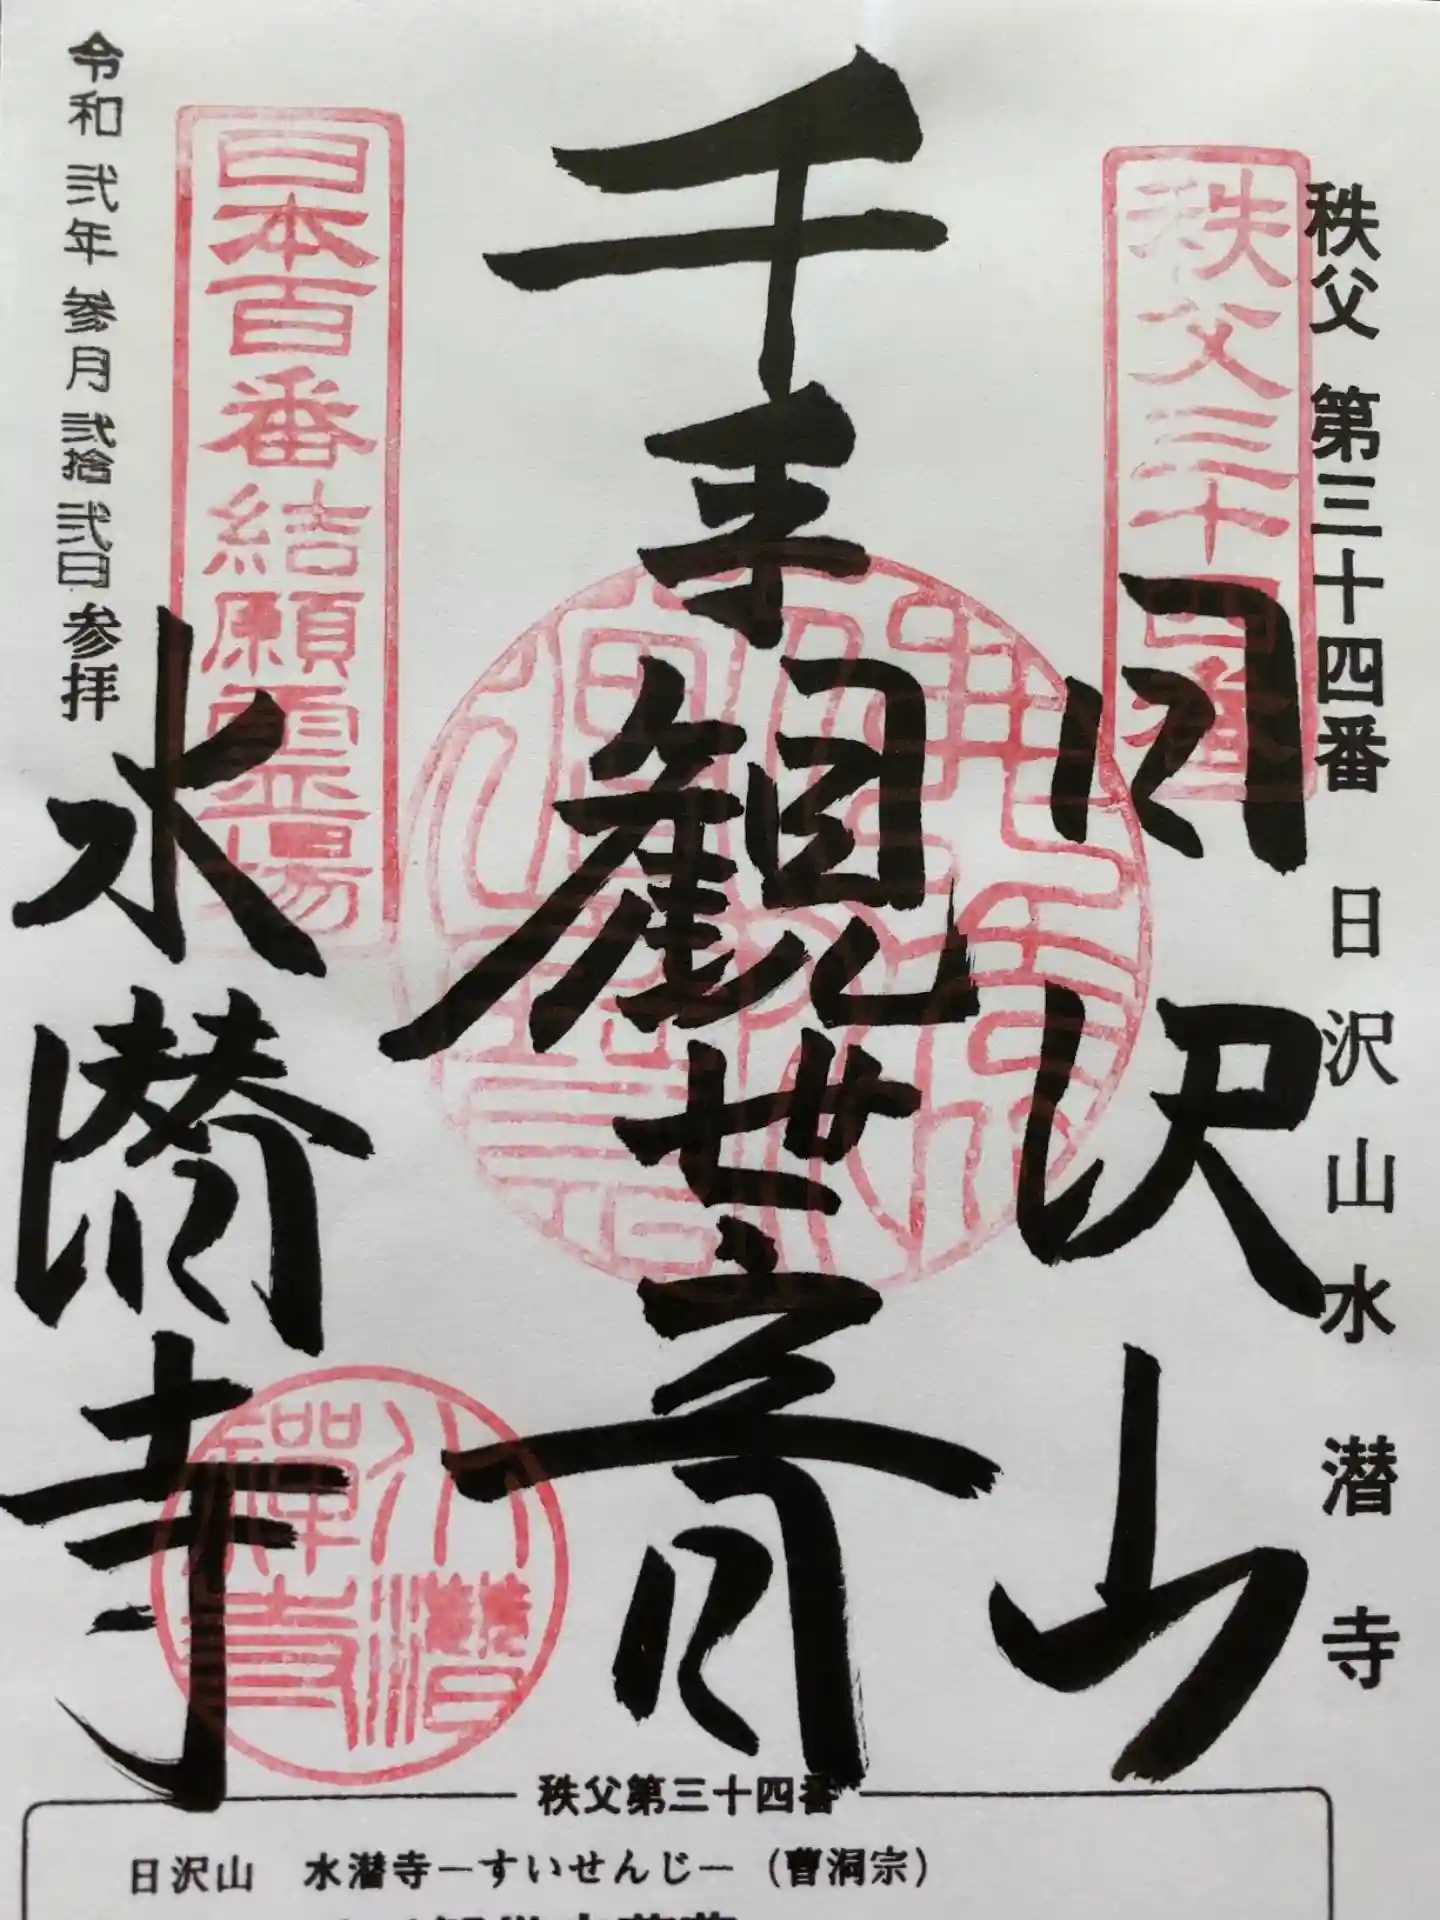 秩父 第三十四番 日沢山水潜寺
秩父三十四番
日沢山
千手観世音
日本百番結願霊場
水潜寺
令和 弐年 参月 弐拾弐日 参拝
水潜禅寺
秩父第三十四番
日沢山 水潜寺－すいせんじ－（曹洞宗）